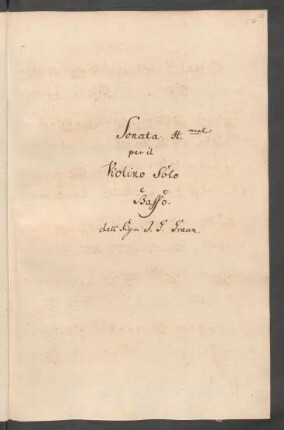 Sonata. A. mol
per il
Violino Solo
e
Basso.
dell Sigr. J. G. Graun.